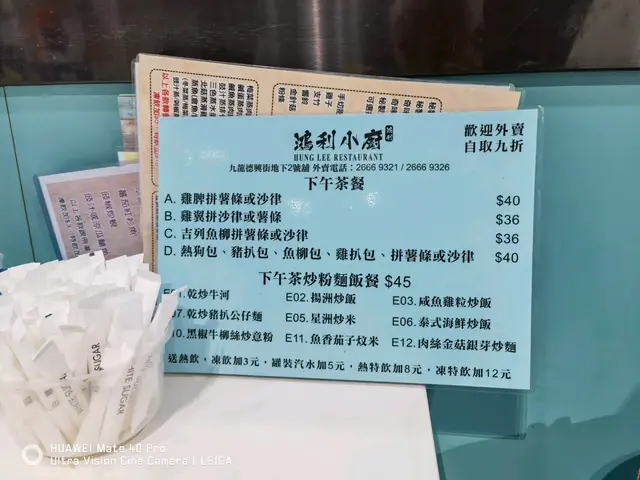 鴻利小廚
HUNG LEE RESTAURANT
歡迎外賣
自取九折
九龍德興街地下2號舖 外賣電話：2666 9321 / 2666 9326
下午茶餐
A. 雞脾拼薯條或沙律 $40
B. 雞翼拼沙律或薯條 $36
C. 吉列魚柳拼薯條或沙律 $36
D. 熱狗包、豬扒包、魚柳包、雞扒包、拼薯條或沙律 $40
下午茶炒粉麵飯餐 $45
E01.乾炒牛河 E02.揚洲炒飯 E03.咸魚雞粒炒飯
07.乾炒豬扒公仔麵 E05.星洲炒米 E06.泰式海鮮炒飯
10.黑椒牛柳絲炒意粉 E11.魚香茄子炆米 E12.肉絲金菇銀芽炒麵
送熱飲，凍飲加3元，罐裝汽水加5元，熱特飲加8元，凍特飲加12元
SUGAR
WHITE SUGAR
HUAWEI Mate 40 Pro
Ultra Vision Cine Camera | LEICA